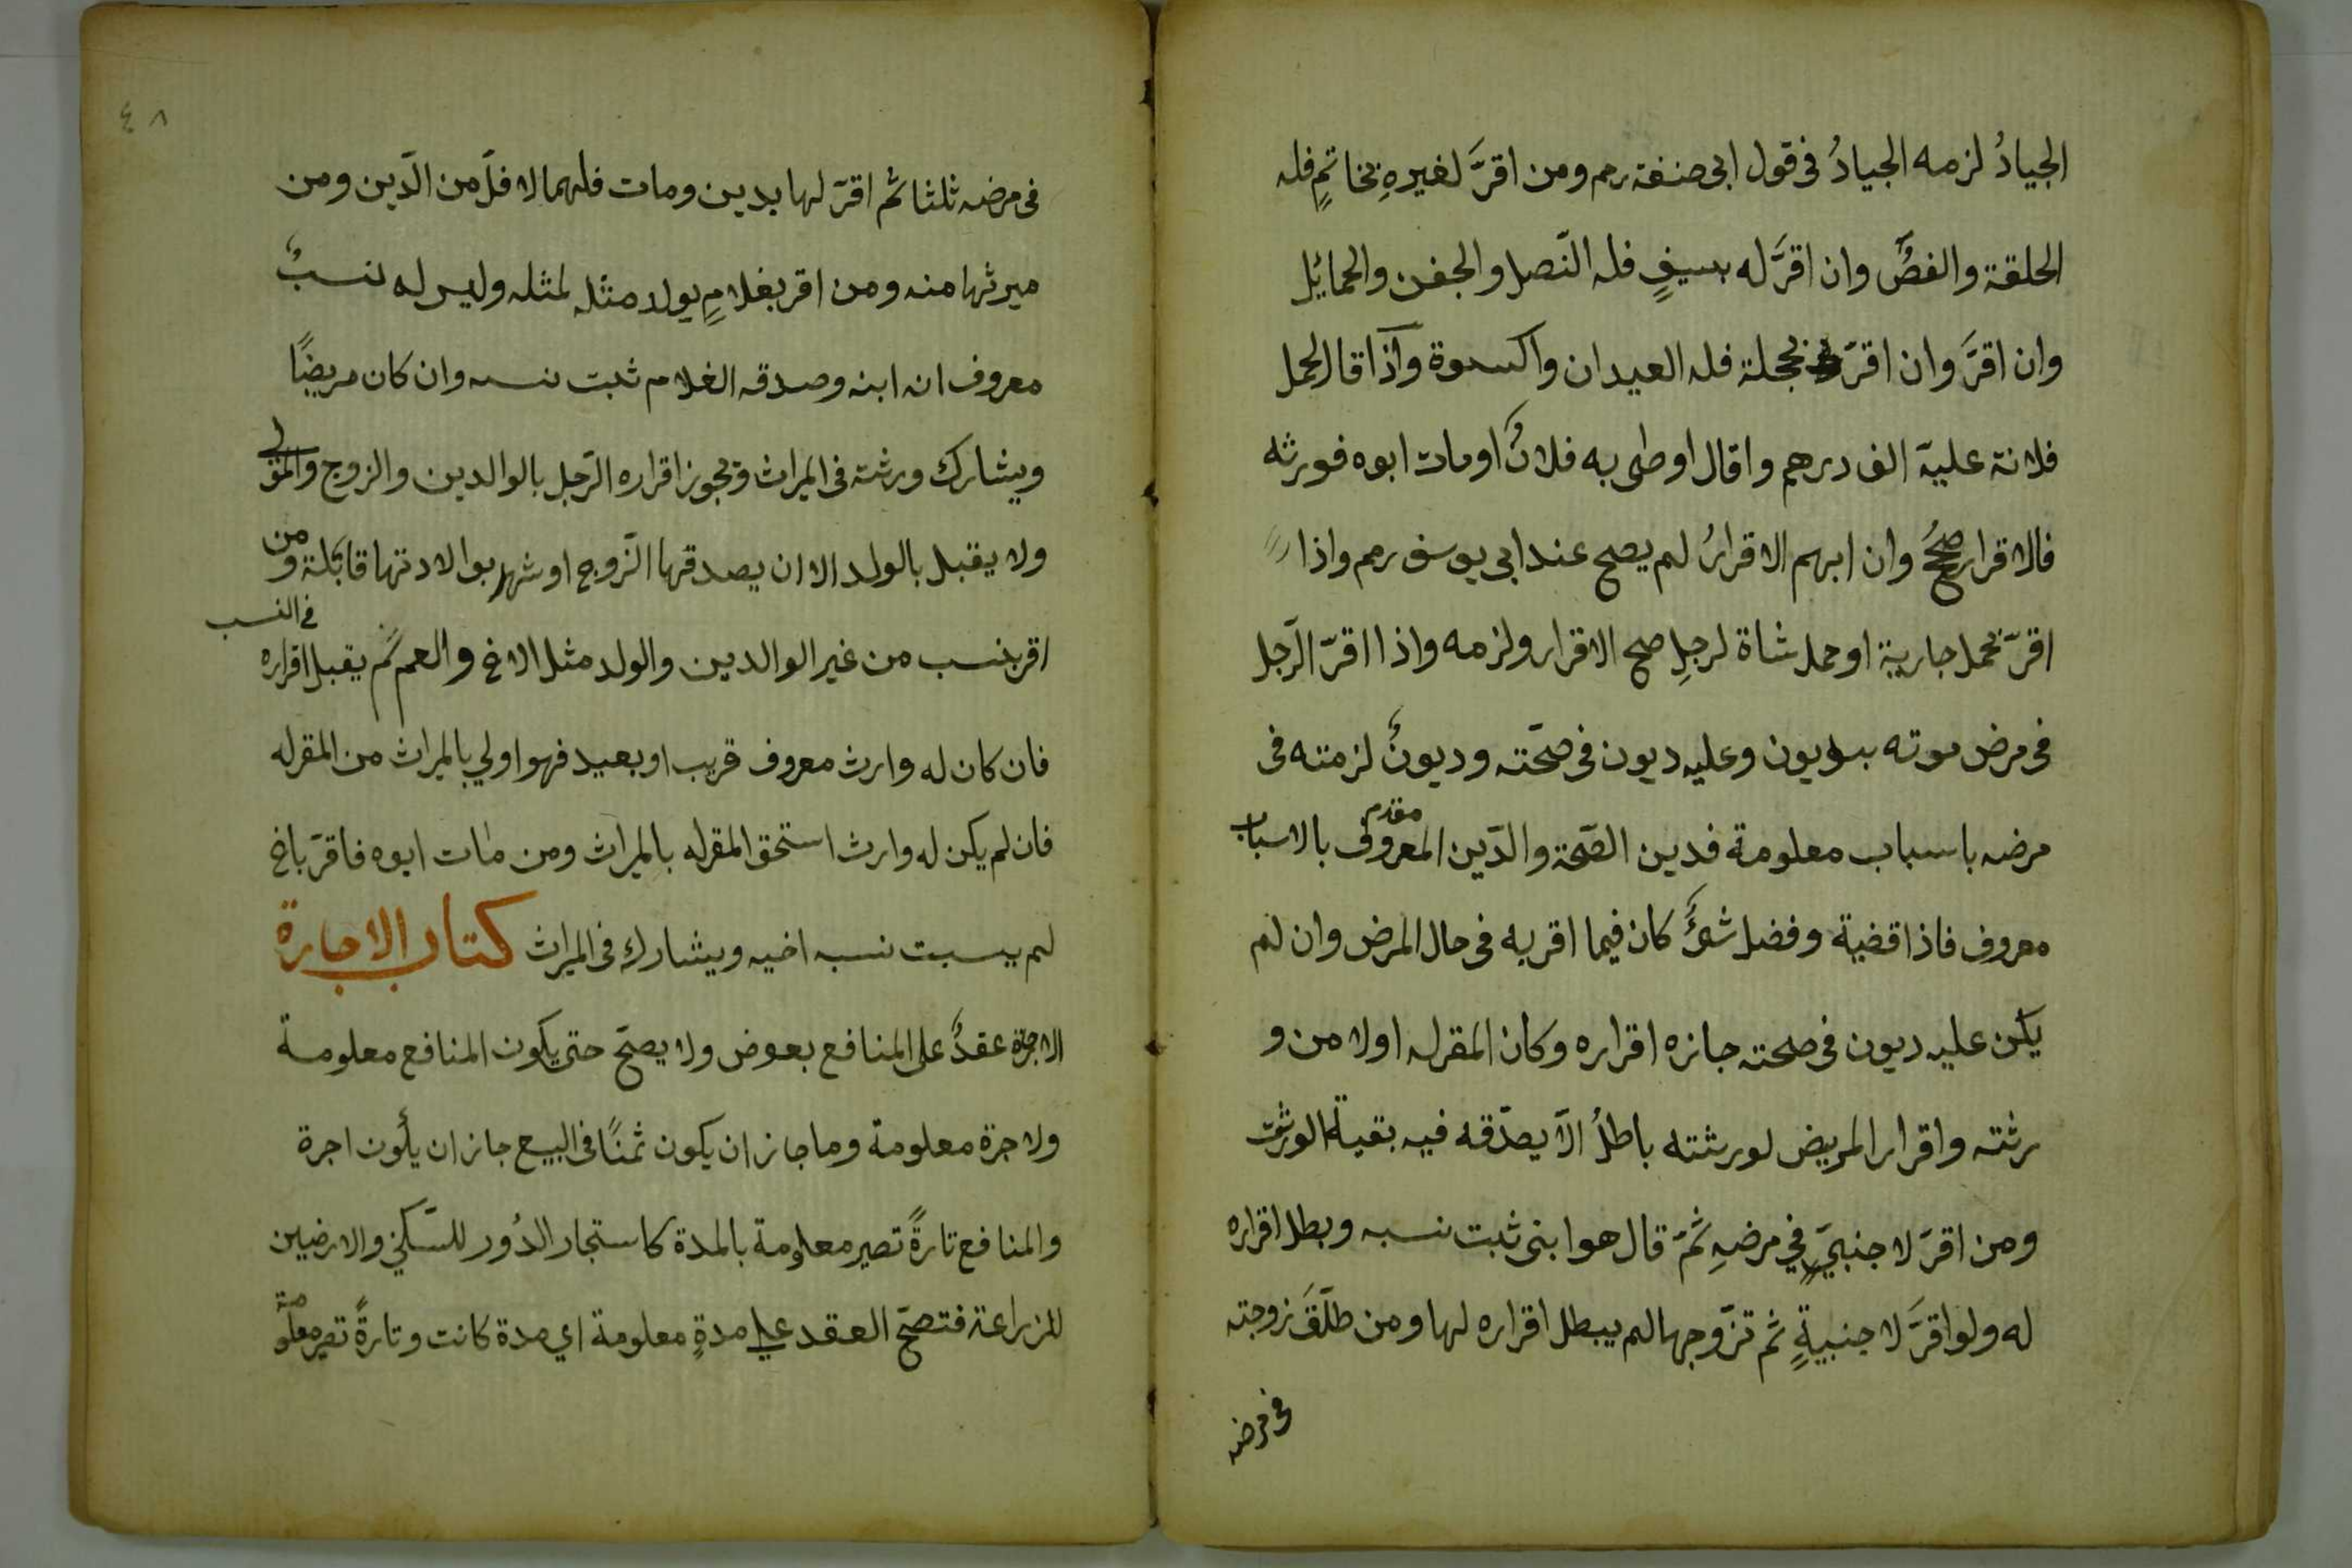 الجيادُ لزمه الجيادُ فى قول ابى حنفة رحم ومن اقرَّ لغيرهِ بخاتمٍ فله
الحلقة والفصُّ وان اقرَّ له بسيفٍ فله النّصل والجفن والحمائل
وان اقرَّ وان اقرّ بحجلة فله العيدان واكسوة وآذا قال لحمل
فلانة عليّ الف درهم واقال اوطى به فلانٌ اومات ابوه فورثه
فالاقرار صحُحٌ وان ابهم الاقرارُ لم يصح عند ابى يوسف رحم واذا
اقرّ بحمل جارية او حمل شاة لرجلٍ صح الاقرار ولزمه واذا اقرّ الرّجل
فى مرض موته بديون وعليه ديون فى صحّته وديونٌ لزمته فى
مرضه باسباب معلومة فدين الصّحة والدّين المعروف بالاسباب مقدم
معروف فاذا قضية وفضل شئٌ كان فيما اقر به فى حال المرض وان لم
يكن عليه ديون فى صحته جازه اقراره وكان المقرله اولا من و
رثته واقرار المريض لورثته باطلُ الّا يصدّقه فيه بقية الورثة
ومن اقرّ لاجنبيّ في مرضهِ ثمّ قال هو ابنى ثبت نسبه وبطل اقراره
له ولو اقرَّ لاجنبيةٍ ثم تزّوجها لم يبطل اقراره لها ومن طلّقَ زوجته
فى مرضه
٤٨
فى مرضه ثلثا ثم اقرّ لها بدين ومات فلهما الاقلّ من الدّين ومن
ميرثها منه ومن اقر بغلامٍ يولد مثله لمثله وليس له نسبٌ
معروف انه ابنه وصدقه الغلام ثبت نسبه وان كان مريضًا
ويشارك ورثته فى الميراث ويجوز اقراره الرّجل بالوالدين والزوج والمولى
ولا يقبل بالولد الا ان يصدقها الزّوج او شهد بولادتها قابلة ومن
اقر بنسب من غير الوالدين والولد مثل الاخ والعم لم يقبل اقراره فى النسب
فان كان له وارث معروف قريب او بعيد فهو اولي بالميراث من المقرله
فان لم يكن له وارث استحق المقرله بالميراث ومن مات ابوه فاقرّ باخ
لم يسبت نسبه اخيه ويشارك فى الميراث كتاب الاجارة
الاجرة عقدٌ على المنافع بعوض ولا يصحّ حتى يكون المنافع معلومة
ولاجرة معلومة وما جاز ان يكون ثمنًا فى البيع جاز ان يكون اجرة
والمنافع تارةً تصير معلومة بالمدة كاستجار الدُور للسّكني والارضيين
للزراعة فتصحّ العقد علي مدةٍ معلومة اي مدة كانت وتارةً تصير معلومة